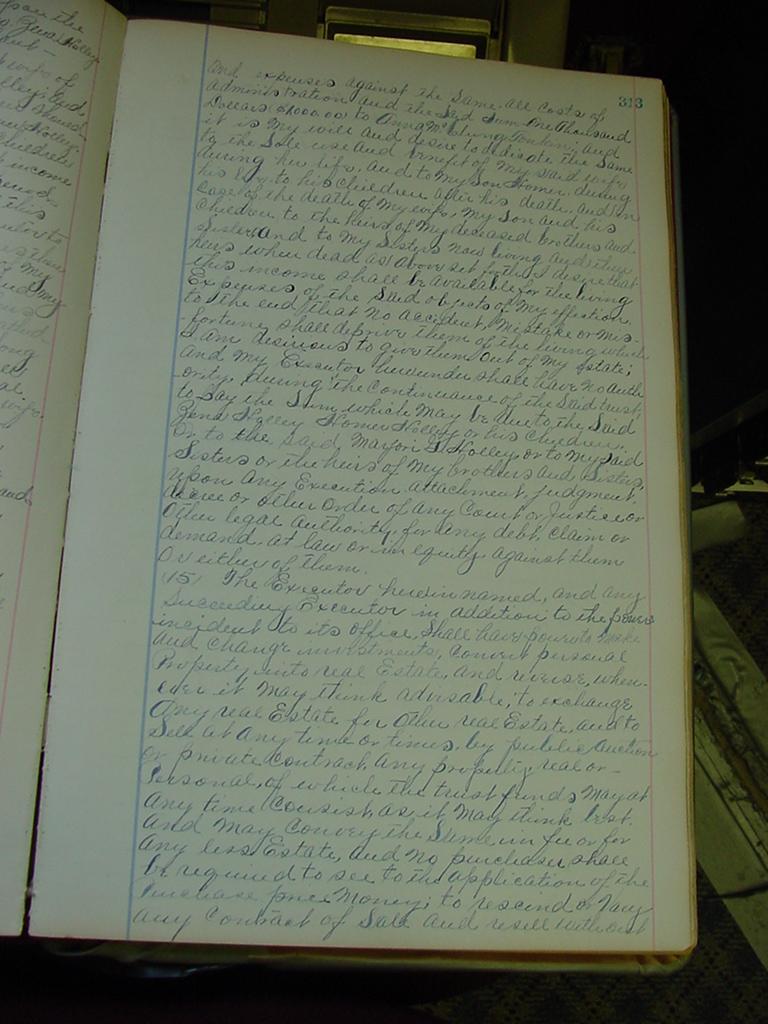 upon the
Zena Holley
wife of
income
of My
313
And expenses against the same all costs of
administration and the said Sum One Thousand
Dollars ($1000.00) to Anna Mc Clung Tomkins; and
it is My will and desire to dedicate the same
to the sole use and benefit of My said wife
during her life, and to My Son Homer, during
his life, to his children after his death, and in
case of the death of My wife, My Son and his
Children to the heirs of My deceased brothers and
sister, and to My Sisters now living and their
heirs when dead as above set forth I desire that
this income shall be available for the living
Expenses of the said objects of My affection,
to the end that no accident, Mistake or mis-
fortune shall deprive them of the living which
I am desirous to give them out of My Estate;
and My Executor hereunder shall have no auth
ority, during the Continuance of the said trust,
to pay the Sum which May be due to the Said
Zena Holley Homer Holley or his Children,
Or to the said Marjori G Holley, or to My said
Sisters or the heirs of My brothers and sisters,
upon any Execution attachment, judgment,
decree or other Order of any Court or Justice or
Other legal authority, for any debt, claim or
demand, at law or in equity against them
Or either of them.
(15) The Executor herein named, and any
Succeeding Executor in addition to the powers
incident to its office, shall have power to make
and change investments, Convert personal
Property into real Estate, and reverse, when-
ever it May think advisable; to exchange
Any real Estate for other real Estate, and to
Sell at any time or times, by public Auction
Or private Contract, any property real or
Personal, of which the trust funds May at
Any time Consist, as it May think best.
And May Convey the Same in fee or for
Any less Estate, and no purchaser shall
be required to see to the application of the
Purchase price Money; to rescind or Vary
Any Contract of Sale and resell without